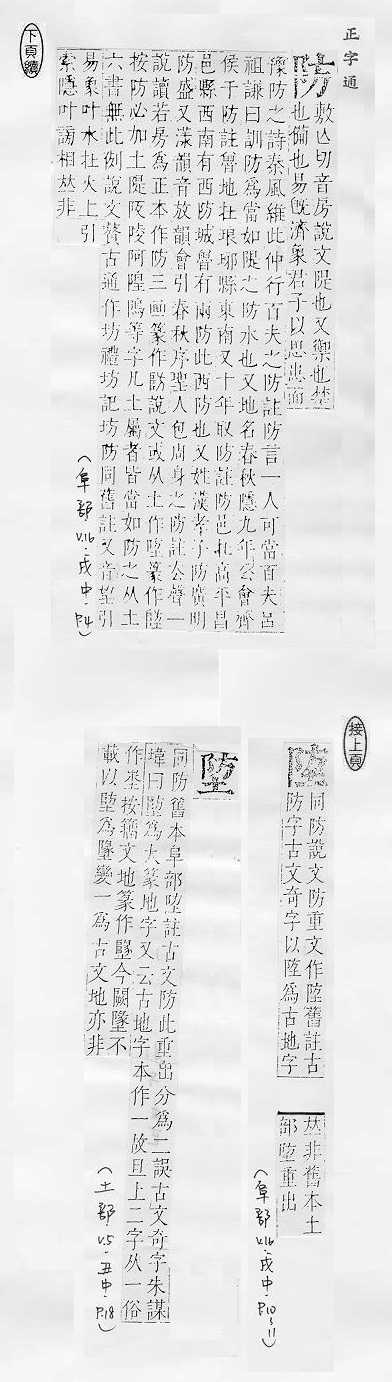 正字通
防
敷亡切音房說文隄也又禦也禁
也備也易旣濟象君子以思患而
豫防之詩秦風維此仲行百夫之防註防言一人可當百夫呂
祖謙曰訓防爲當如隄之防水也又地名春秋隱九年公會齊
侯于防註魯地在琅邪縣東南又十年取防註防邑在高平昌
邑縣西南有西防城魯有兩防此西防也又姓漢孝子防廣明
防盛又漾韻音放韻會引春秋序聖人包周身之防註公聲一
說讀若房爲正本作防三畫篆作防說文或从土作埅篆作
按防必加土隄阪陵阿隍隝等字凡土屬者皆當如防之从土
六書無此例說文贅古通作坊禮坊記坊防同舊註又音望引
易象叶水在火上引
索隱叶謗相𠀤非
(阜部 V.16.戌中.P.4)
下頁續
接上頁
埅
同防說文防重文作埅舊註古
防字古文奇字以埅爲古地字
𠀤非舊本土
部埅重出
(阜部 V.16.戌中.P.10~11)
埅
同防舊本阜部埅註古文防此重出分爲二誤古文奇字朱謀
㙔曰埅爲大篆地字又云古地字本作一故旦上二字从一俗
作埊按籒文地篆作墬今闕墬不
載以埅爲墬變一爲古文地亦非
(土部.V.5.丑中.P.18)